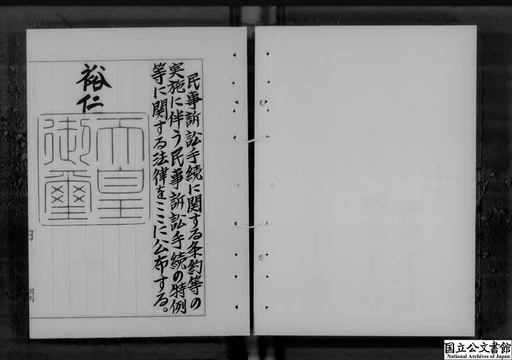 民事訴訟手続に関する条約等の
実施に伴う民事訴訟手続の特例
等に関する法律をここに公布する。
裕仁
天皇
御璽
国立公文書館
National Archives of Japan